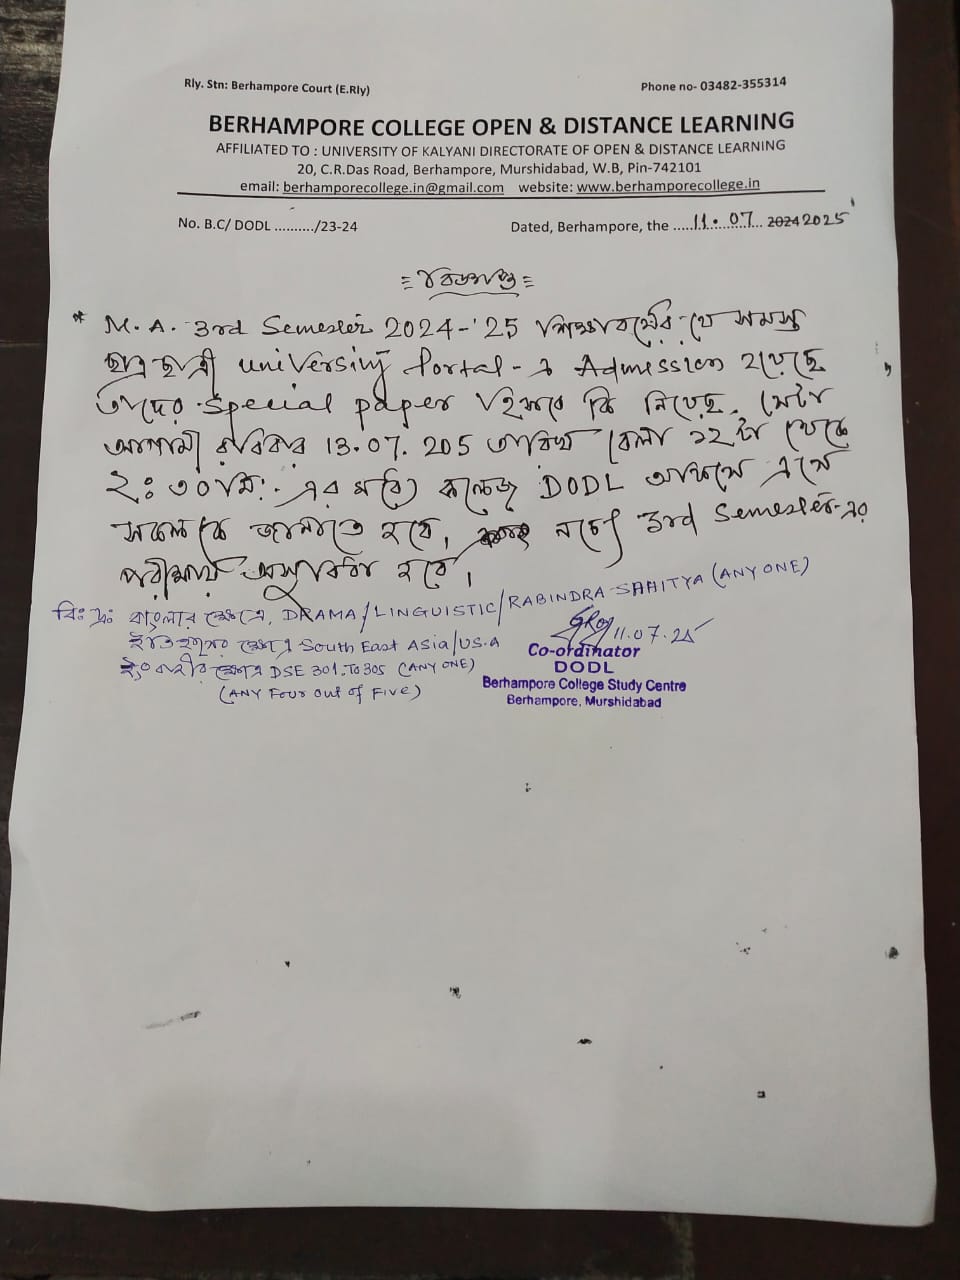 Rly. Stn: Berhampore Court (E.Rly) Phone no- 03482-355314
BERHAMPORE COLLEGE OPEN & DISTANCE LEARNING
AFFILIATED TO : UNIVERSITY OF KALYANI DIRECTORATE OF OPEN & DISTANCE LEARNING
20, C.R.Das Road, Berhampore, Murshidabad, W.B, Pin-742101
email: berhamporecollege.in@gmail.com website: www.berhamporecollege.in
No. B.C/ DODL ........../23-24 Dated, Berhampore, the .....11.07... 2024 2025
= বিজ্ঞপ্তি =
* M.A. 3rd Semester 2024-'25 শিক্ষাবর্ষের যে সমস্ত
ছাত্রছাত্রী university Portal-এ Admission হয়েছে
তাদের Special paper হিসাবে কি নিয়েছে, সেটা
আগামী রবিবার 13.07.205 তারিখ বেলা ১২টা থেকে
২:৩০মি: এর মধ্যে কলেজ DODL অফিসে এসে
সকলকে জানাতে হবে, নচেৎ 3rd Semester-এর
পরীক্ষায় অসুবিধা হবে।
বি: দ্র: বাংলার ক্ষেত্রে, DRAMA/LINGUISTIC/RABINDRA-SAHITYA (ANY ONE)
ইতিহাসের ক্ষেত্রে South East Asia/U.S.A
ইংরাজীর ক্ষেত্রে DSE 301. To 305 (ANY ONE)
(ANY Four out of Five)
11.07.25
Co-ordinator
DODL
Berhampore College Study Centre
Berhampore, Murshidabad